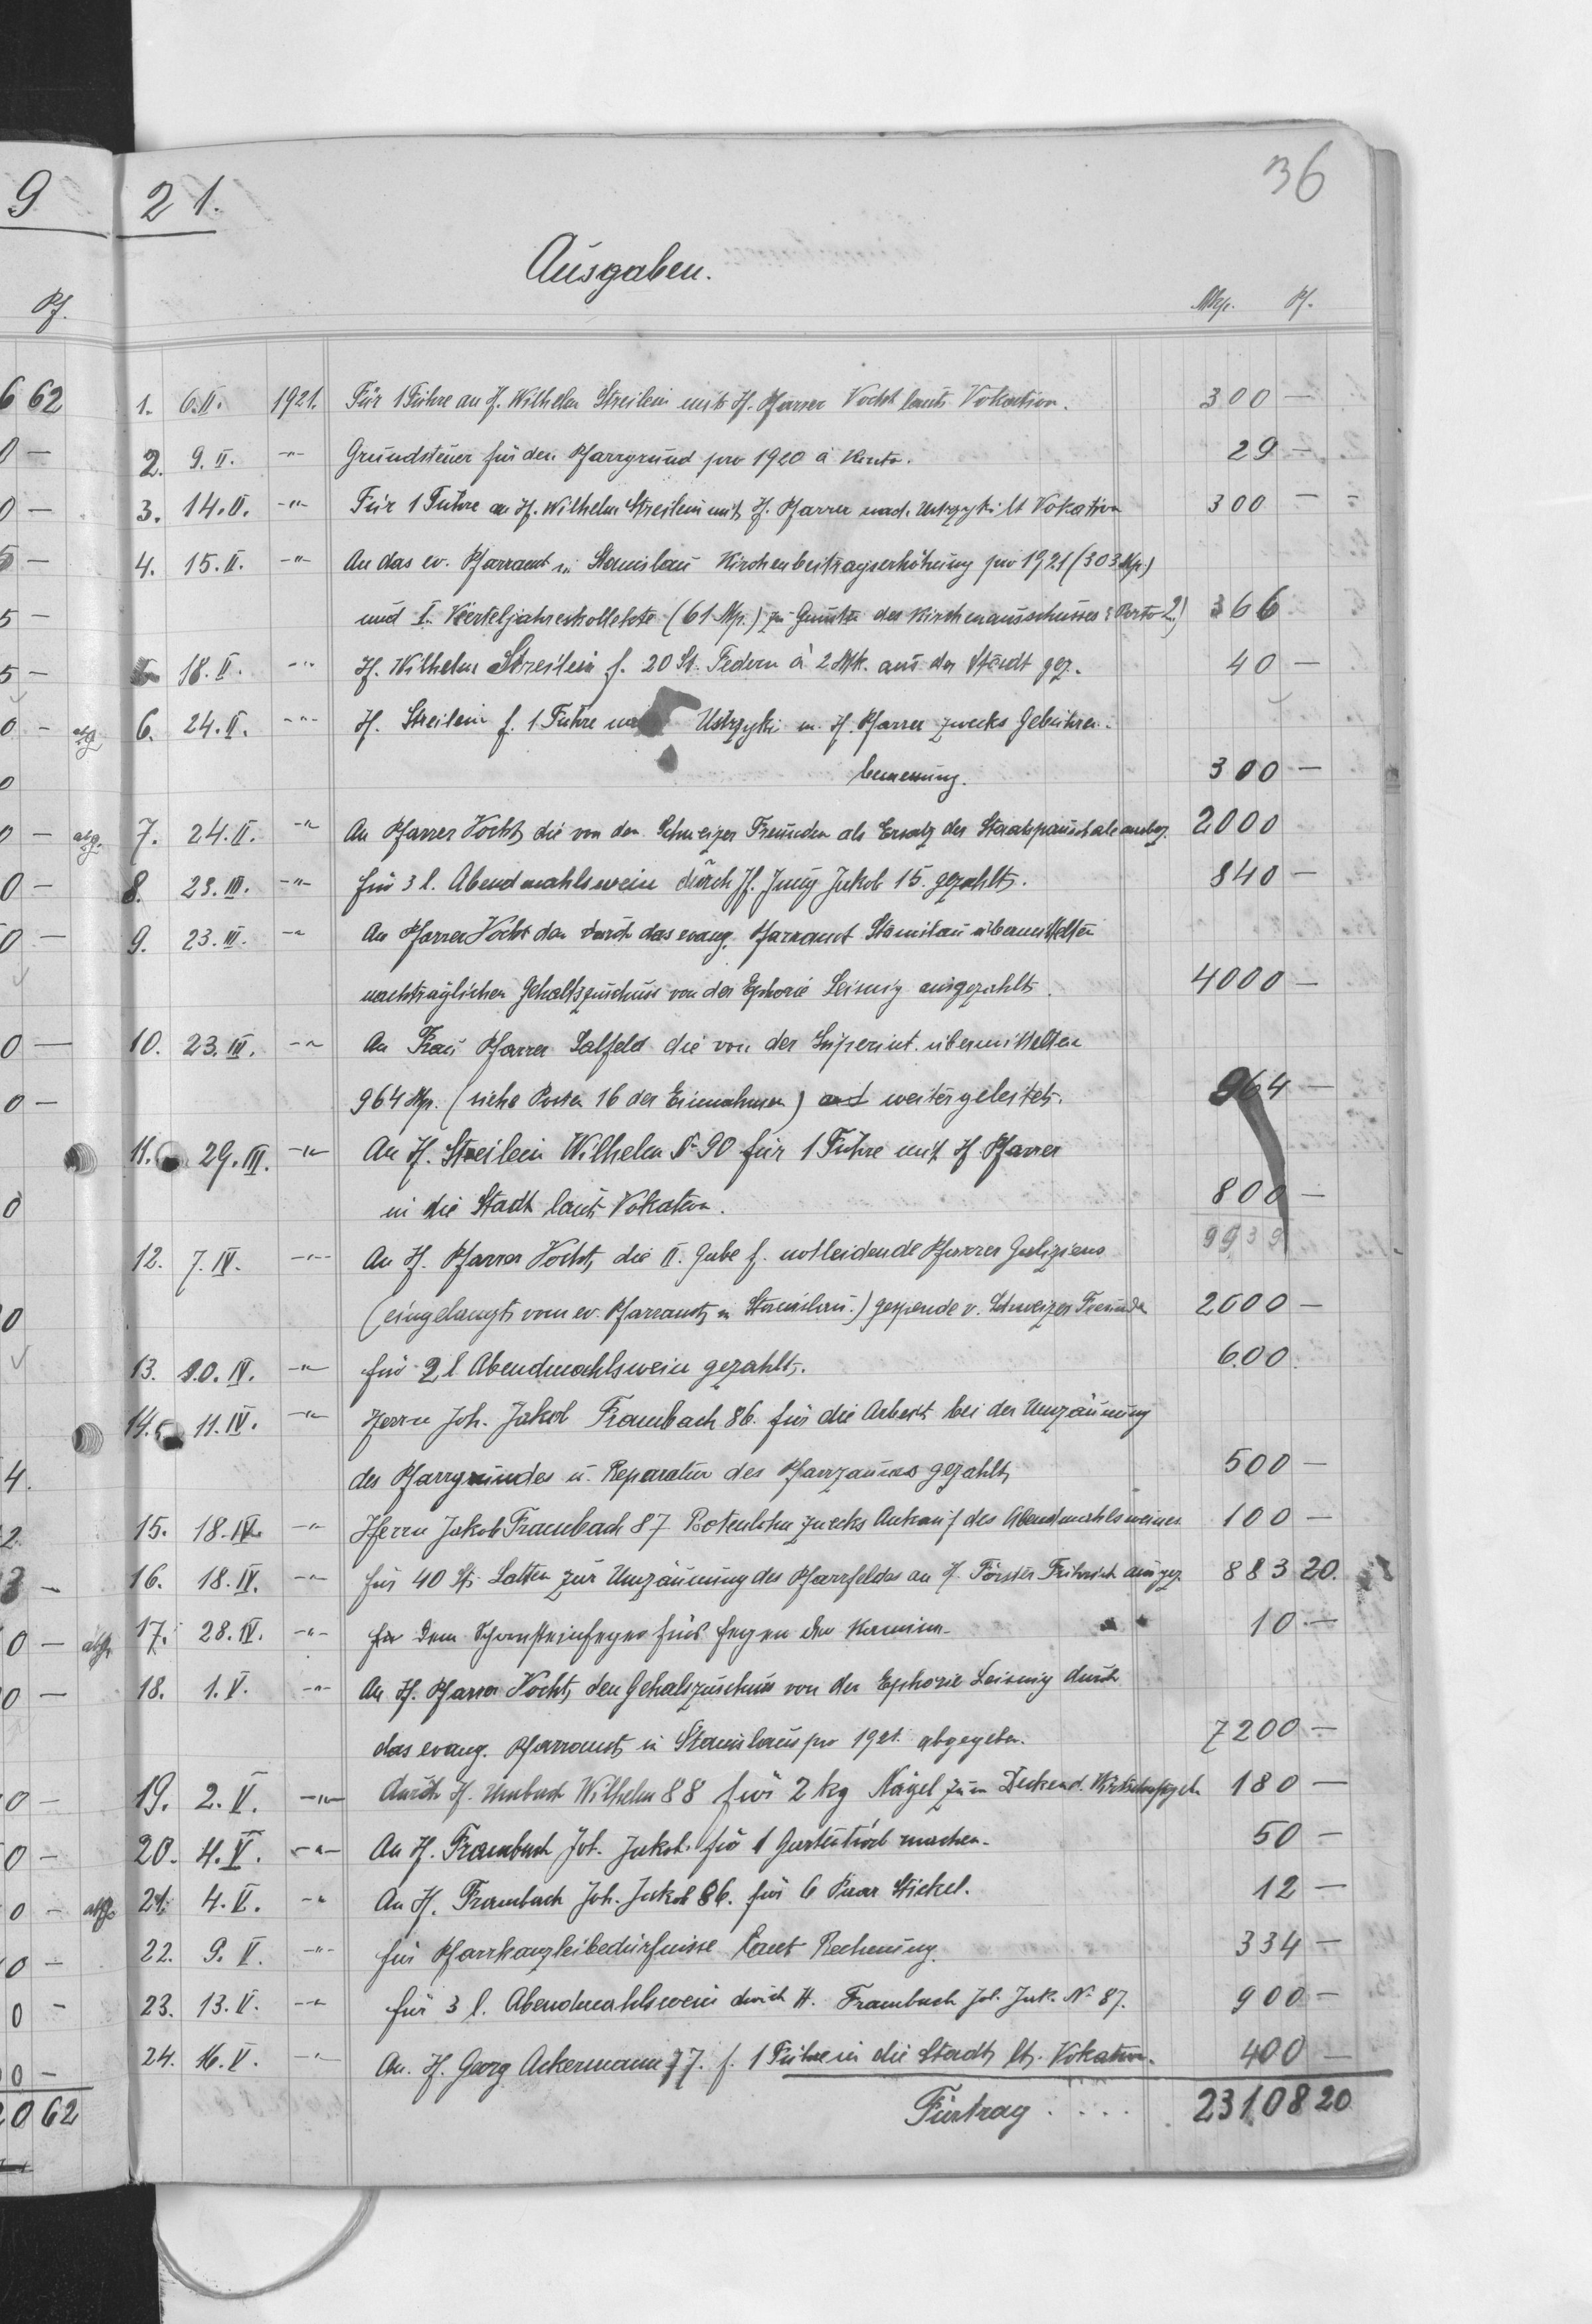 36
9 21.
Ausgaben.
Pf.
Mkp. Pf.
6 62
1. 6.II. 1921. Für 1 Fuhre an H. Wilhelm Streilein mit H. Pfarrer Vocht laut Vokation. 300 —
2. 9. II. -"- Grundsteuer für den Pfarrgrund pro 1920 à Konto. 29 —
3. 14. II. -"- Für 1 Fuhre an H. Wilhelm Streilein mit H. Pfarrer nach Ustrzyki lt Vokation 300 —
4. 15. II. -"- An das ev. Pfarramt in Stanislau Kirchenbeitragserhöhung pro 1921 (303 Mp.)
und I. Vierteljahreskollekte (61 Mp.) zu Gunsten des Kirchenausschusses (Porto 2) 366
5. 18. II. -"- H. Wilhelm Streilein f. 20 St. Federn à 2 Mk. aus der Stadt gez. 40 —
6. 24. II. -"- H. Streilein f. 1 Fuhre Ustrzyki m. H. Pfarrer zwecks Gebühren-
bemessung. 300 —
abg. 7. 24. II. -"- An Pfarrer Vocht die von den Schweizer Freunden als Ersatz der Staatspauschale ausbez. 2000
8. 23. III. -"- für 3 l. Abendmahlswein durch H. Jung Jakob 15. gezahlt. 840 —
9. 23. III. -"- An Pfarrer Vocht den durch das evang. Pfarramt Stanislau übermittelten
nachträglichen Gehaltszuschuss von der Ephorie Leisnig ausgezahlt. 4000 —
10. 23. III. -"- An Frau Pfarrer Salfeld die von der Superint. übermittelten
964 Mp. (siehe Posten 16 der Einnahmen) weitergeleitet. 964 —
11. 29. III. -"- An H. Streilein Wilhelm № 90 für 1 Fuhre mit H. Pfarrer
in die Stadt laut Vokation. 800 —
9939
12. 7. IV. -"- An H. Pfarrer Vocht, die II. Gabe f. notleidende Pfarrer Galiziens
(eingelangt vom ev. Pfarramt in Stanislau.) gespende v. Schweizer Freunden 2000 —
13. 10. IV. -"- für 2 l Abendmahlswein gezahlt. 600
14. 11. IV. -"- Herrn Joh. Jakob Frambach 86. für die Arbeit bei der Umzäunung
des Pfarrgrundes u. Reparatur des Pfarrzaunes gezahlt 500 —
15. 18. IV. -"- Herrn Jakob Frambach 87 Botenlohn zwecks Ankauf des Abendmahlsweines 100 —
16. 18. IV. -"- für 40 St. Latten zur Umzäunung des Pfarrfeldes an H. Förster ausgez. 883 20.
17. 28. IV. -"- Dem Schornsteinfeger fürs fegen der Kamine 10 —
18. 1. V. -"- An H. Pfarrer Vocht, den Gehalszuschuss von der Ephorie Leisnig durch
das evang. Pfarramt in Stanislau pro 1921. abgegeben. 7200 —
19. 2. V. -"- durch H. Umbach Wilhelm 88 für 2 kg Nägel zum Decken d. 180 —
20. 4. V. -"- An H. Frambach Joh. Jakob für 1 machen. 50 —
21. 4. V. -"- An H. Frambach Joh. Jakob 86. für 6 Paar Stickel. 12 —
22. 9. V. -"- für Pfarrkanzleibedürfnisse laut Rechnung. 334 —
23. 13. V. -"- für 3 l. Abendmahlswein durch H. Frambach Joh. Jak. № 87. 900 —
24. 16. V. -"- An H. Georg Ackermann 77. f. 1 Fuhre in die Stadt lt. Vokation. 400 —
Fürtrag . . . . 23108 20
0 62